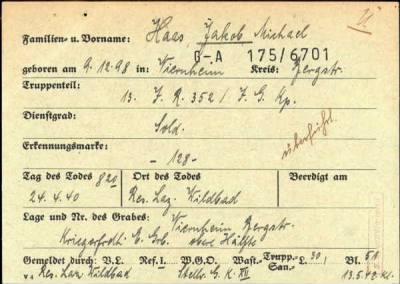 Familien- u. Vorname: Haas, Jakob Michael
G-A 175/6701
geboren am 9.12.98 in Viernheim Kreis: Bergstr.
Truppenteil:
13. J. R. 352 / J. G. Kp.
Dienstgrad:
Sold.
überführt.
Erkennungsmarke:
- 128 -
Tag des Todes 8²⁰ Ort des Todes Beerdigt am
24.4.40 Res. Laz. Wildbad
Lage und Nr. des Grabes: Viernheim Bergstr.
Kriegerfrdh. E. Grb. obere Hälfte
Gemeldet durch: V.L. Ref.I. W.G.O. Wast.- Trupp.- San.- L. 30/ Bl. 51
v. Res. Laz. Wildbad Stellv. G. K. XII 13.5.42